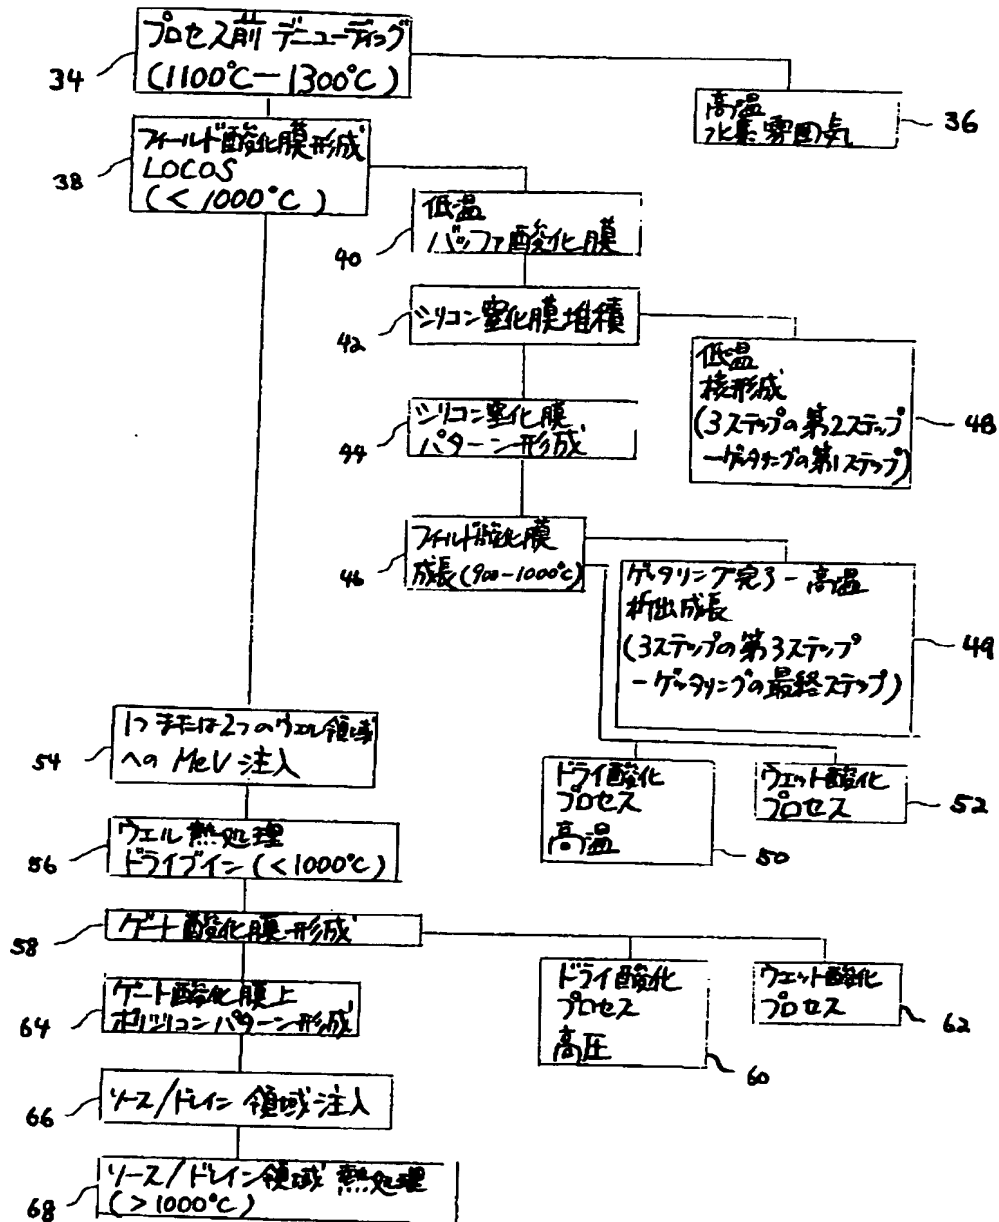 プロセス前デニューディング
(1100℃ー1300℃)
34
高温
水素雰囲気
36
フィールド酸化膜形成
LOCOS
(<1000℃)
38
低温
バッファ酸化膜
40
シリコン窒化膜堆積
42
低温
核形成
(3ステップの第2ステップ
ーゲッタリングの第1ステップ)
48
シリコン窒化膜
パターン形成
44
フィールド酸化膜
成長(900-1000℃)
46
ゲッタリング完了-高温
析出成長
(3ステップの第3ステップ
ーゲッタリングの最終ステップ)
49
1つまたは2つのウェル領域
への MeV 注入
54
ドライ酸化
プロセス
高温
50
ウェット酸化
プロセス
52
ウェル熱処理
ドライブイン(<1000℃)
56
ゲート酸化膜形成
58
ドライ酸化
プロセス
高圧
60
ウェット酸化
プロセス
62
ゲート酸化膜上
ポリシリコンパターン形成
64
ソース/ドレイン領域注入
66
ソース/ドレイン領域熱処理
(>1000℃)
68